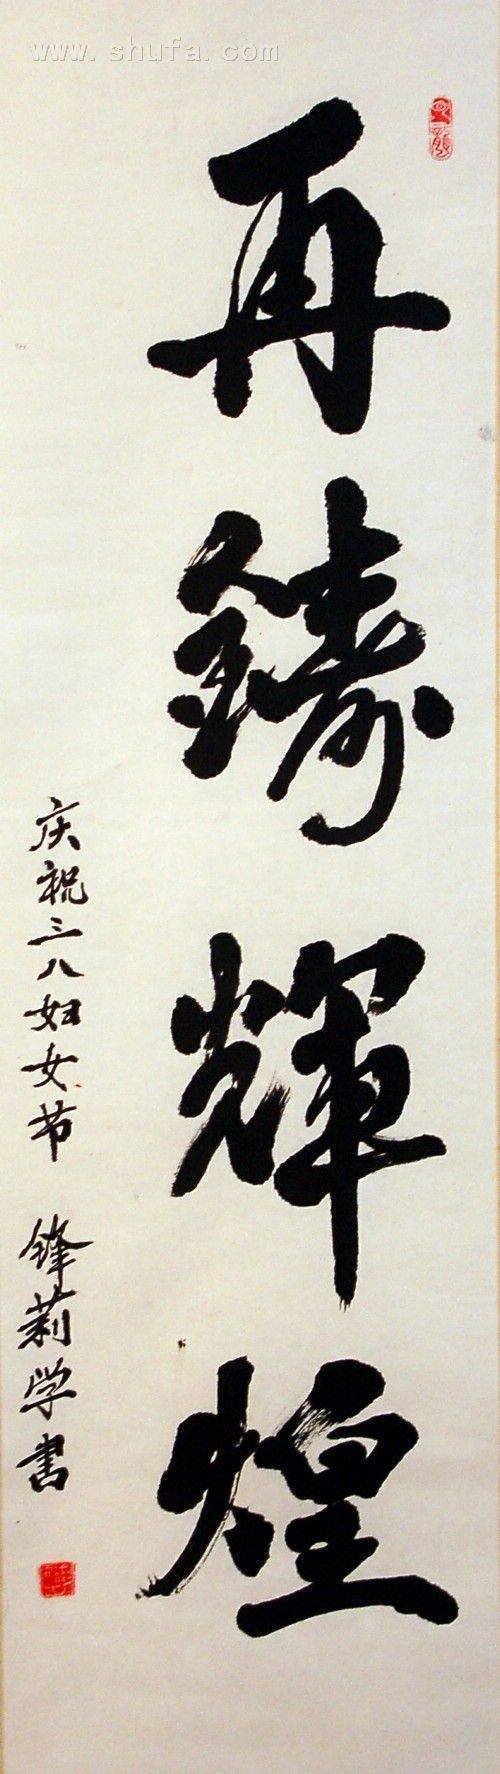 www.shufa.com
再鑄輝煌
庆祝三八妇女节 锋莉学书